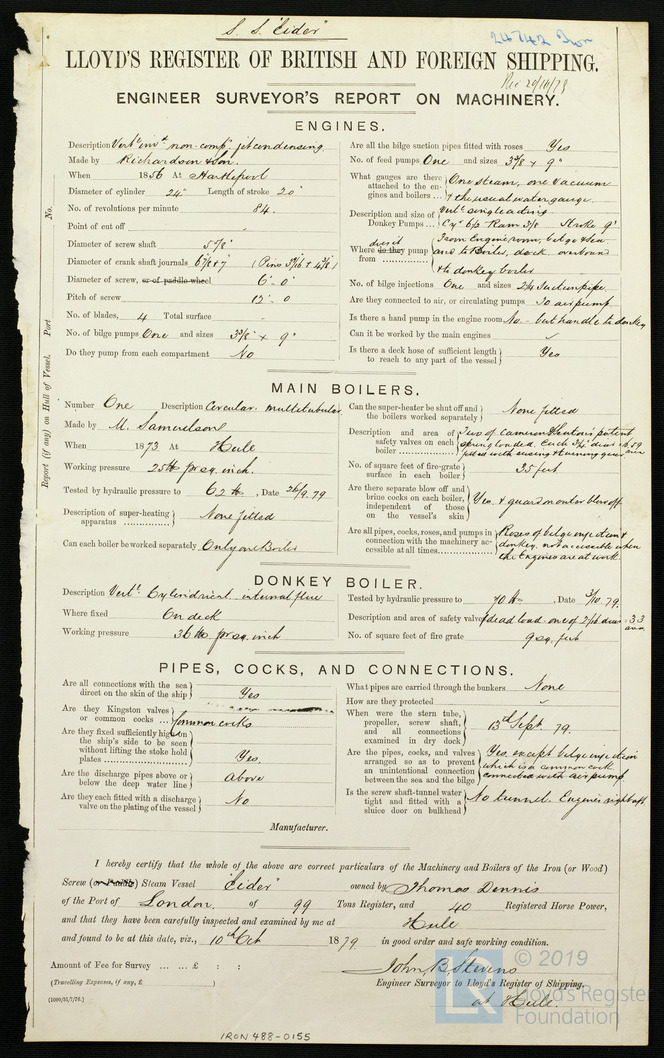 S. S. "Eider"
24742 Iron
Rec 20/10/79
LLOYD'S REGISTER OF BRITISH AND FOREIGN SHIPPING.
ENGINEER SURVEYOR'S REPORT ON MACHINERY.
ENGINES.
Description Vertl invd non-comp. jet condensing
Made by Richardson & Son.
When 1856 At Hartlepool
Diameter of cylinder 24" Length of stroke 20"
No. of revolutions per minute 84.
Point of cut off
Diameter of screw shaft 5 7/8"
Diameter of crank shaft journals
Diameter of screw, or of paddle wheel 6'-0"
Pitch of screw 12'-0
No. of blades, 4 Total surface
No. of bilge pumps One and sizes 3 3/8" x 9"
Do they pump from each compartment No
Are all the bilge suction pipes fitted with roses Yes
No. of feed pumps One and sizes 3 3/8 x 9"
What gauges are there attached to the engines and boilers One steam, one Vacuum & the usual water gauge
Description and size of Donkey Pumps Vertl single acting Cyr 6 1/2 Ram 3 3/8 Stroke 9"
Where does it pump from From Engine room, bilge & sea and to Boiler, deck, overboard & to donkey boiler
No. of bilge injections One and sizes 2 1/4 suction pipe
Are they connected to air, or circulating pumps To air pump
Is there a hand pump in the engine room No - but handle to donkey
Can it be worked by the main engines
Is there a deck hose of sufficient length to reach to any part of the vessel Yes
No. Port
Report (if any) on Hull of Vessel.
MAIN BOILERS.
Number One Description Circular. multitubular
Made by M. Samuelson
When 1873 At Hull
Working pressure 25 lbs pr sq. inch.
Tested by hydraulic pressure to 62 lb, Date 26/9.79
Description of super-heating apparatus None fitted
Can each boiler be worked separately Only one Boiler
Can the super-heater be shut off and the boilers worked separately None fitted
Description and area of safety valves on each boiler Two of Cameron & patent spring loaded. Each 3 1/4" diar
No. of square feet of fire-grate surface in each boiler 35 feet
Are there separate blow off and brine cocks on each boiler, independent of those on the vessel's skin Yes. & guard on outer blow off
Are all pipes, cocks, roses, and pumps in connection with the machinery accessible at all times Roses of bilge injection & donkey, not accessible when the Engines are at work.
DONKEY BOILER.
Description Vertl. Cylindrical. internal flue
Where fixed On deck
Working pressure 36 lbs pr sq. inch
Tested by hydraulic pressure to 70 lb, Date 3/10.79.
Description and area of safety valve dead load. one of
No. of square feet of fire grate 9 sq. feet
PIPES, COCKS, AND CONNECTIONS.
Are all connections with the sea direct on the skin of the ship Yes
Are they Kingston valves or common cocks Common cocks
Are they fixed sufficiently high on the ship's side to be seen without lifting the stoke hole plates Yes.
Are the discharge pipes above or below the deep water line above
Are they each fitted with a discharge valve on the plating of the vessel No
What pipes are carried through the bunkers None
How are they protected
When were the stern tube, propeller, screw shaft, and all connections examined in dry dock 13th Sept. 79.
Are the pipes, cocks, and valves arranged so as to prevent an unintentional connection between the sea and the bilge Yes except bilge injection which is a common cock connected with air pump
Is the screw shaft-tunnel water tight and fitted with a sluice door on bulkhead No tunnel. Engines right aft
Manufacturer.
I hereby certify that the whole of the above are correct particulars of the Machinery and Boilers of the Iron (or Wood)
Screw (or Paddle) Steam Vessel "Eider" owned by Thomas Dennis
of the Port of London. of 99 Tons Register, and 40 Registered Horse Power,
and that they have been carefully inspected and examined by me at Hull
and found to be at this date, viz., 10th Oct 1879 in good order and safe working condition.
Amount of Fee for Survey ... ... £ : :
(Travelling Expenses, if any, £ )
[1000/31/7/76.]
John B. Stevens
Engineer Surveyor to Lloyd's Register of Shipping.
at Hull.
© 2019
Lloyd's Register
Foundation
IRON 488-0155